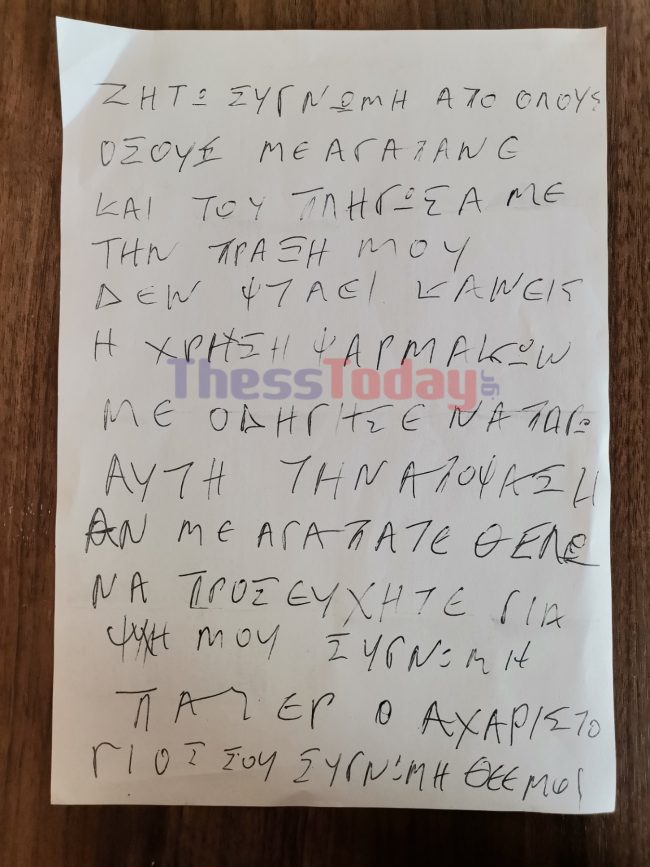 ΖΗΤΩ ΣΥΓΝΩΜΗ ΑΠΟ ΟΛΟΥΣ
ΟΣΟΥΣ ΜΕ ΑΓΑΠΑΝΕ
ΚΑΙ ΤΟΥ ΠΛΗΓΩΣΑ ΜΕ
ΤΗΝ ΠΡΑΞΗ ΜΟΥ
ΔΕΝ ΨΤΑΕΙ ΚΑΝΕΙΣ
Η ΧΡΗΣΗ ΨΑΡΜΑΚΩΝ
ThessToday.gr
ΜΕ ΟΔΗΓΗΣΕ ΝΑ ΠΑΡΩ
ΑΥΤΗ ΤΗΝ ΑΠΟΨΑΣΗ
ΑΝ ΜΕ ΑΓΑΠΑΤΕ ΘΕΛΩ
ΝΑ ΠΡΟΣΕΥΧΗΤΕ ΓΙΑ
ΨΥΧΗ ΜΟΥ ΣΥΓΝΩΜΗ
ΠΑΤΕΡ Ο ΑΧΑΡΙΣΤΟ
ΓΙΟΣ ΣΟΥ ΣΥΓΝΩΜΗ ΘΕΕ ΜΟΥ